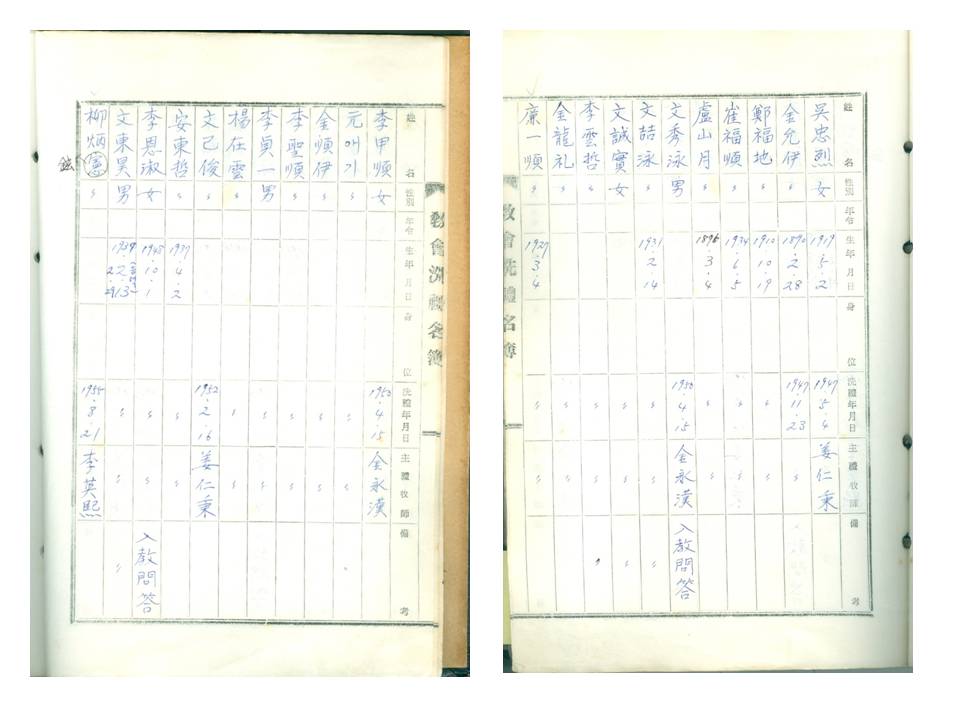 姓名 性別 年令 生年月日 身位 洗禮年月日 主禮牧師 備考
吳忠烈 女 1919.5.2 1947.5.4 姜仁秉
金允伊 〃 1890.2.28 1947.11.23 〃 〃
鄭福地 〃 1910.10.19 〃 〃
崔福順 〃 1934.6.5 〃 〃
盧山月 〃 1896.3.4 〃 〃
文秀泳 男 1950.4.15 金永漢 入教問答
文喆泳 〃 1931.2.14 〃 〃 〃
文誠實 女 〃 〃 〃
李雲哲 〃 〃 〃 〃
金龍礼 〃 〃 〃
廉一順 〃 1927.3.4 〃 〃
敎會洗禮名簿
敎會洗禮名簿
姓名 性別 年令 生年月日 身位 洗禮年月日 主禮牧師 備考
李甲順 女 1950.4.15 金永漢
元애기 〃 〃 〃
金順伊 〃 〃 〃
李聖順 〃 〃 〃
李貞一 男 〃 〃
楊在雲 〃 〃 〃
文己俊 〃 1952.2.16 姜仁秉
安東哲 〃 1937.4.2 〃 〃
李恩淑 女 1948.10.1 〃 〃 入教問答
文東昊 男 〃 〃 〃
柳炳憲 〃 1955.8.21 李英熙
鉉